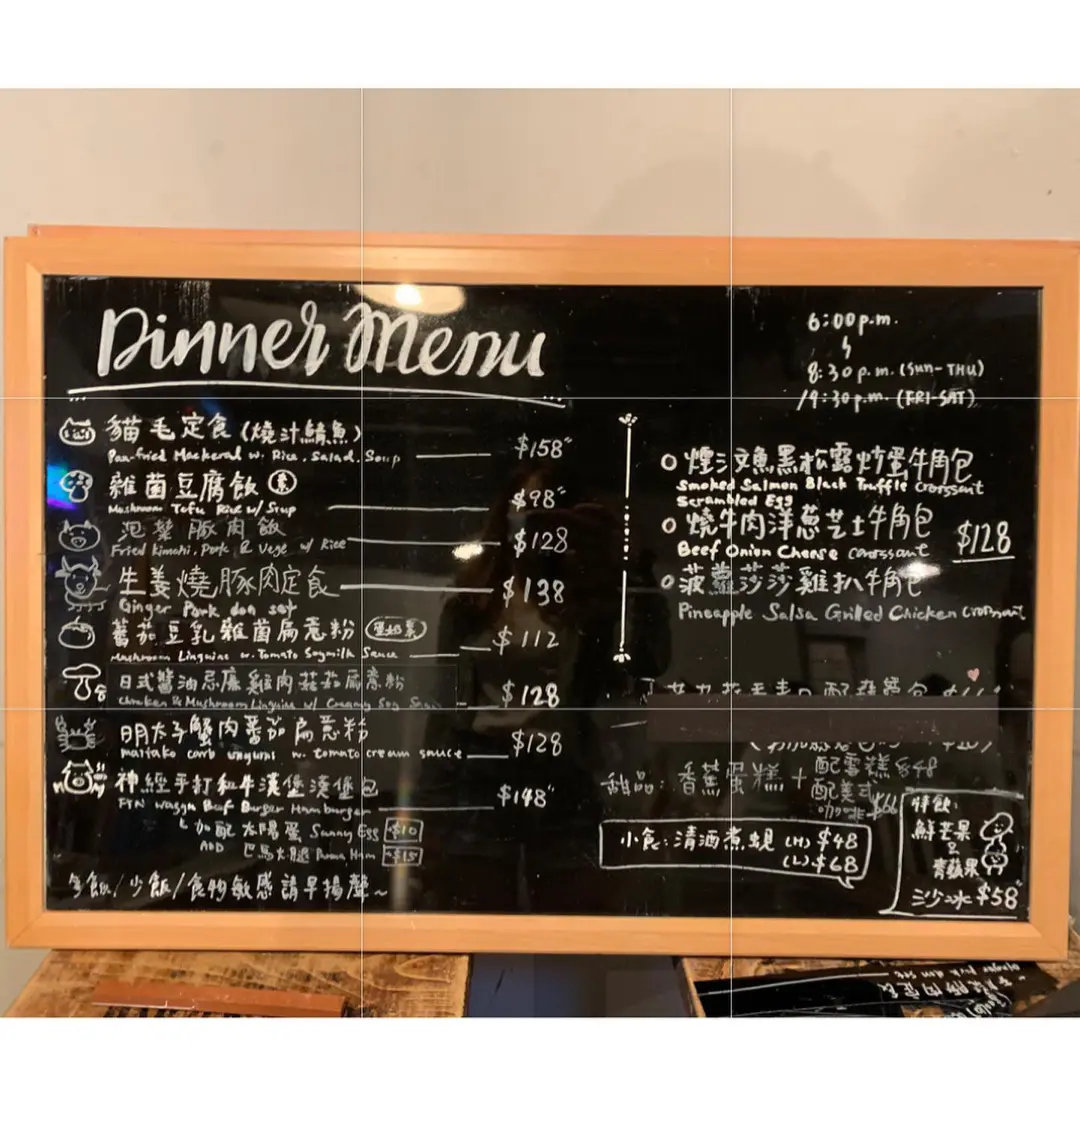 Dinner Menu
6:00p.m.
8:30p.m. (SUN-THU)
/9:30p.m. (FRI-SAT)
貓毛定食 (燒汁鯖魚)
Pan-fried Mackeral w. Rice, Salad, Soup
$158
雜菌豆腐飯 素
Mushroom Tofu Rice w/ Soup
$98
泡菜豚肉飯
Fried Kimchi, Pork & Vege w/ Rice
$128
生姜燒豚肉定食
Ginger Pork don set
$138
蕃茄豆乳雜菌扁意粉
Mushroom Linguine w. Tomato Soymilk Sauce
$112
日式醬油忌廉雞肉菇菇扁意粉
Chicken & Mushroom Linguine w/ Creamy Soy
$128
明太子蟹肉蕃茄扁意粉
w. tomato cream sauce
$128
神經手打和牛漢堡漢堡包
Beef Burger Hamburger
$148
加配 太陽蛋 Sunny Egg +$10
ADD 巴馬火腿 Parma Ham +$15
多飯/少飯/食物敏感請早揚聲~
煙三文魚黑松露炒蛋牛角包
Smoked Salmon Black Truffle Croissant
Scrambled Egg
燒牛肉洋蔥芝士牛角包
Beef Onion Cheese croissant
$128
菠蘿莎莎雞扒牛角包
Pineapple Salsa Grilled Chicken Croissant
甜品: 香蕉蛋糕 + 配雪糕 $48
配美式
咖啡 $66
小食: 清酒煮蜆 (H) $48
(L) $68
特飲:
鮮芒果
青蘋果
沙冰 $58